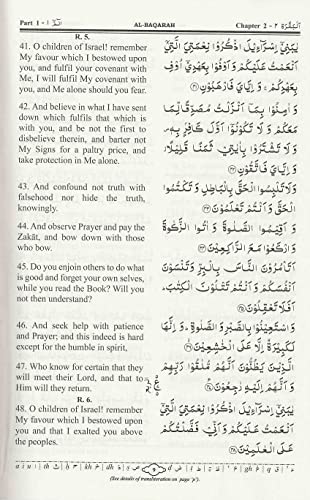 Part 1 - ١
AL-BAQARAH
Chapter 2 - ٢ البقرة
R. 5.
41. O children of Israel! remember
My favour which I bestowed upon
you, and fulfil your covenant with
Me, I will fulfil My covenant with
you, and Me alone should you fear.
42. And believe in what I have sent
down which fulfils that which is
with you, and be not the first to
disbelieve therein, and barter not
My Signs for a paltry price, and
take protection in Me alone.
43. And confound not truth with
falsehood nor hide the truth,
knowingly.
44. And observe Prayer and pay the
Zakāt, and bow down with those
who bow.
45. Do you enjoin others to do what
is good and forget your own selves,
while you read the Book? Will you
not then understand?
46. And seek help with patience
and Prayer; and this indeed is hard
except for the humble in spirit,
47. Who know for certain that they
will meet their Lord, and that to
Him will they return.
R. 6.
48. O children of Israel! remember
My favour which I bestowed upon
you and that I exalted you above
the peoples.
يٰبَنِيْٓ اِسْرَآءِيْلَ اذْكُرُوْا نِعْمَتِيَ الَّتِيْٓ
اَنْعَمْتُ عَلَيْكُمْ وَ اَوْفُوْا بِعَهْدِيْٓ اُوْفِ
بِعَهْدِكُمْ ۚ وَ اِيَّايَ فَارْهَبُوْنِ
وَ اٰمِنُوْا بِمَآ اَنْزَلْتُ مُصَدِّقًا لِّمَا
مَعَكُمْ وَ لَا تَكُوْنُوْٓا اَوَّلَ كَافِرٍۭ بِهٖ ۪
وَ لَا تَشْتَرُوْا بِاٰيٰتِيْ ثَمَنًا قَلِيْلًا ۫
وَّ اِيَّايَ فَاتَّقُوْنِ
وَ لَا تَلْبِسُوا الْحَقَّ بِالْبَاطِلِ وَ تَكْتُمُوا
الْحَقَّ وَ اَنْتُمْ تَعْلَمُوْنَ
وَ اَقِيْمُوا الصَّلٰوةَ وَ اٰتُوا الزَّكٰوةَ
وَ ارْكَعُوْا مَعَ الرّٰكِعِيْنَ
اَتَاْمُرُوْنَ النَّاسَ بِالْبِرِّ وَ تَنْسَوْنَ
اَنْفُسَكُمْ وَ اَنْتُمْ تَتْلُوْنَ الْكِتٰبَ ؕ
اَفَلَا تَعْقِلُوْنَ
وَ اسْتَعِيْنُوْا بِالصَّبْرِ وَ الصَّلٰوةِ ؕ وَ اِنَّهَا
لَكَبِيْرَةٌ اِلَّا عَلَى الْخٰشِعِيْنَ
الَّذِيْنَ يَظُنُّوْنَ اَنَّهُمْ مُّلٰقُوْا رَبِّهِمْ
وَ اَنَّهُمْ اِلَيْهِ رٰجِعُوْنَ
يٰبَنِيْٓ اِسْرَآءِيْلَ اذْكُرُوْا نِعْمَتِيَ الَّتِيْٓ
اَنْعَمْتُ عَلَيْكُمْ وَ اَنِّيْ فَضَّلْتُكُمْ
عَلَى الْعٰلَمِيْنَ